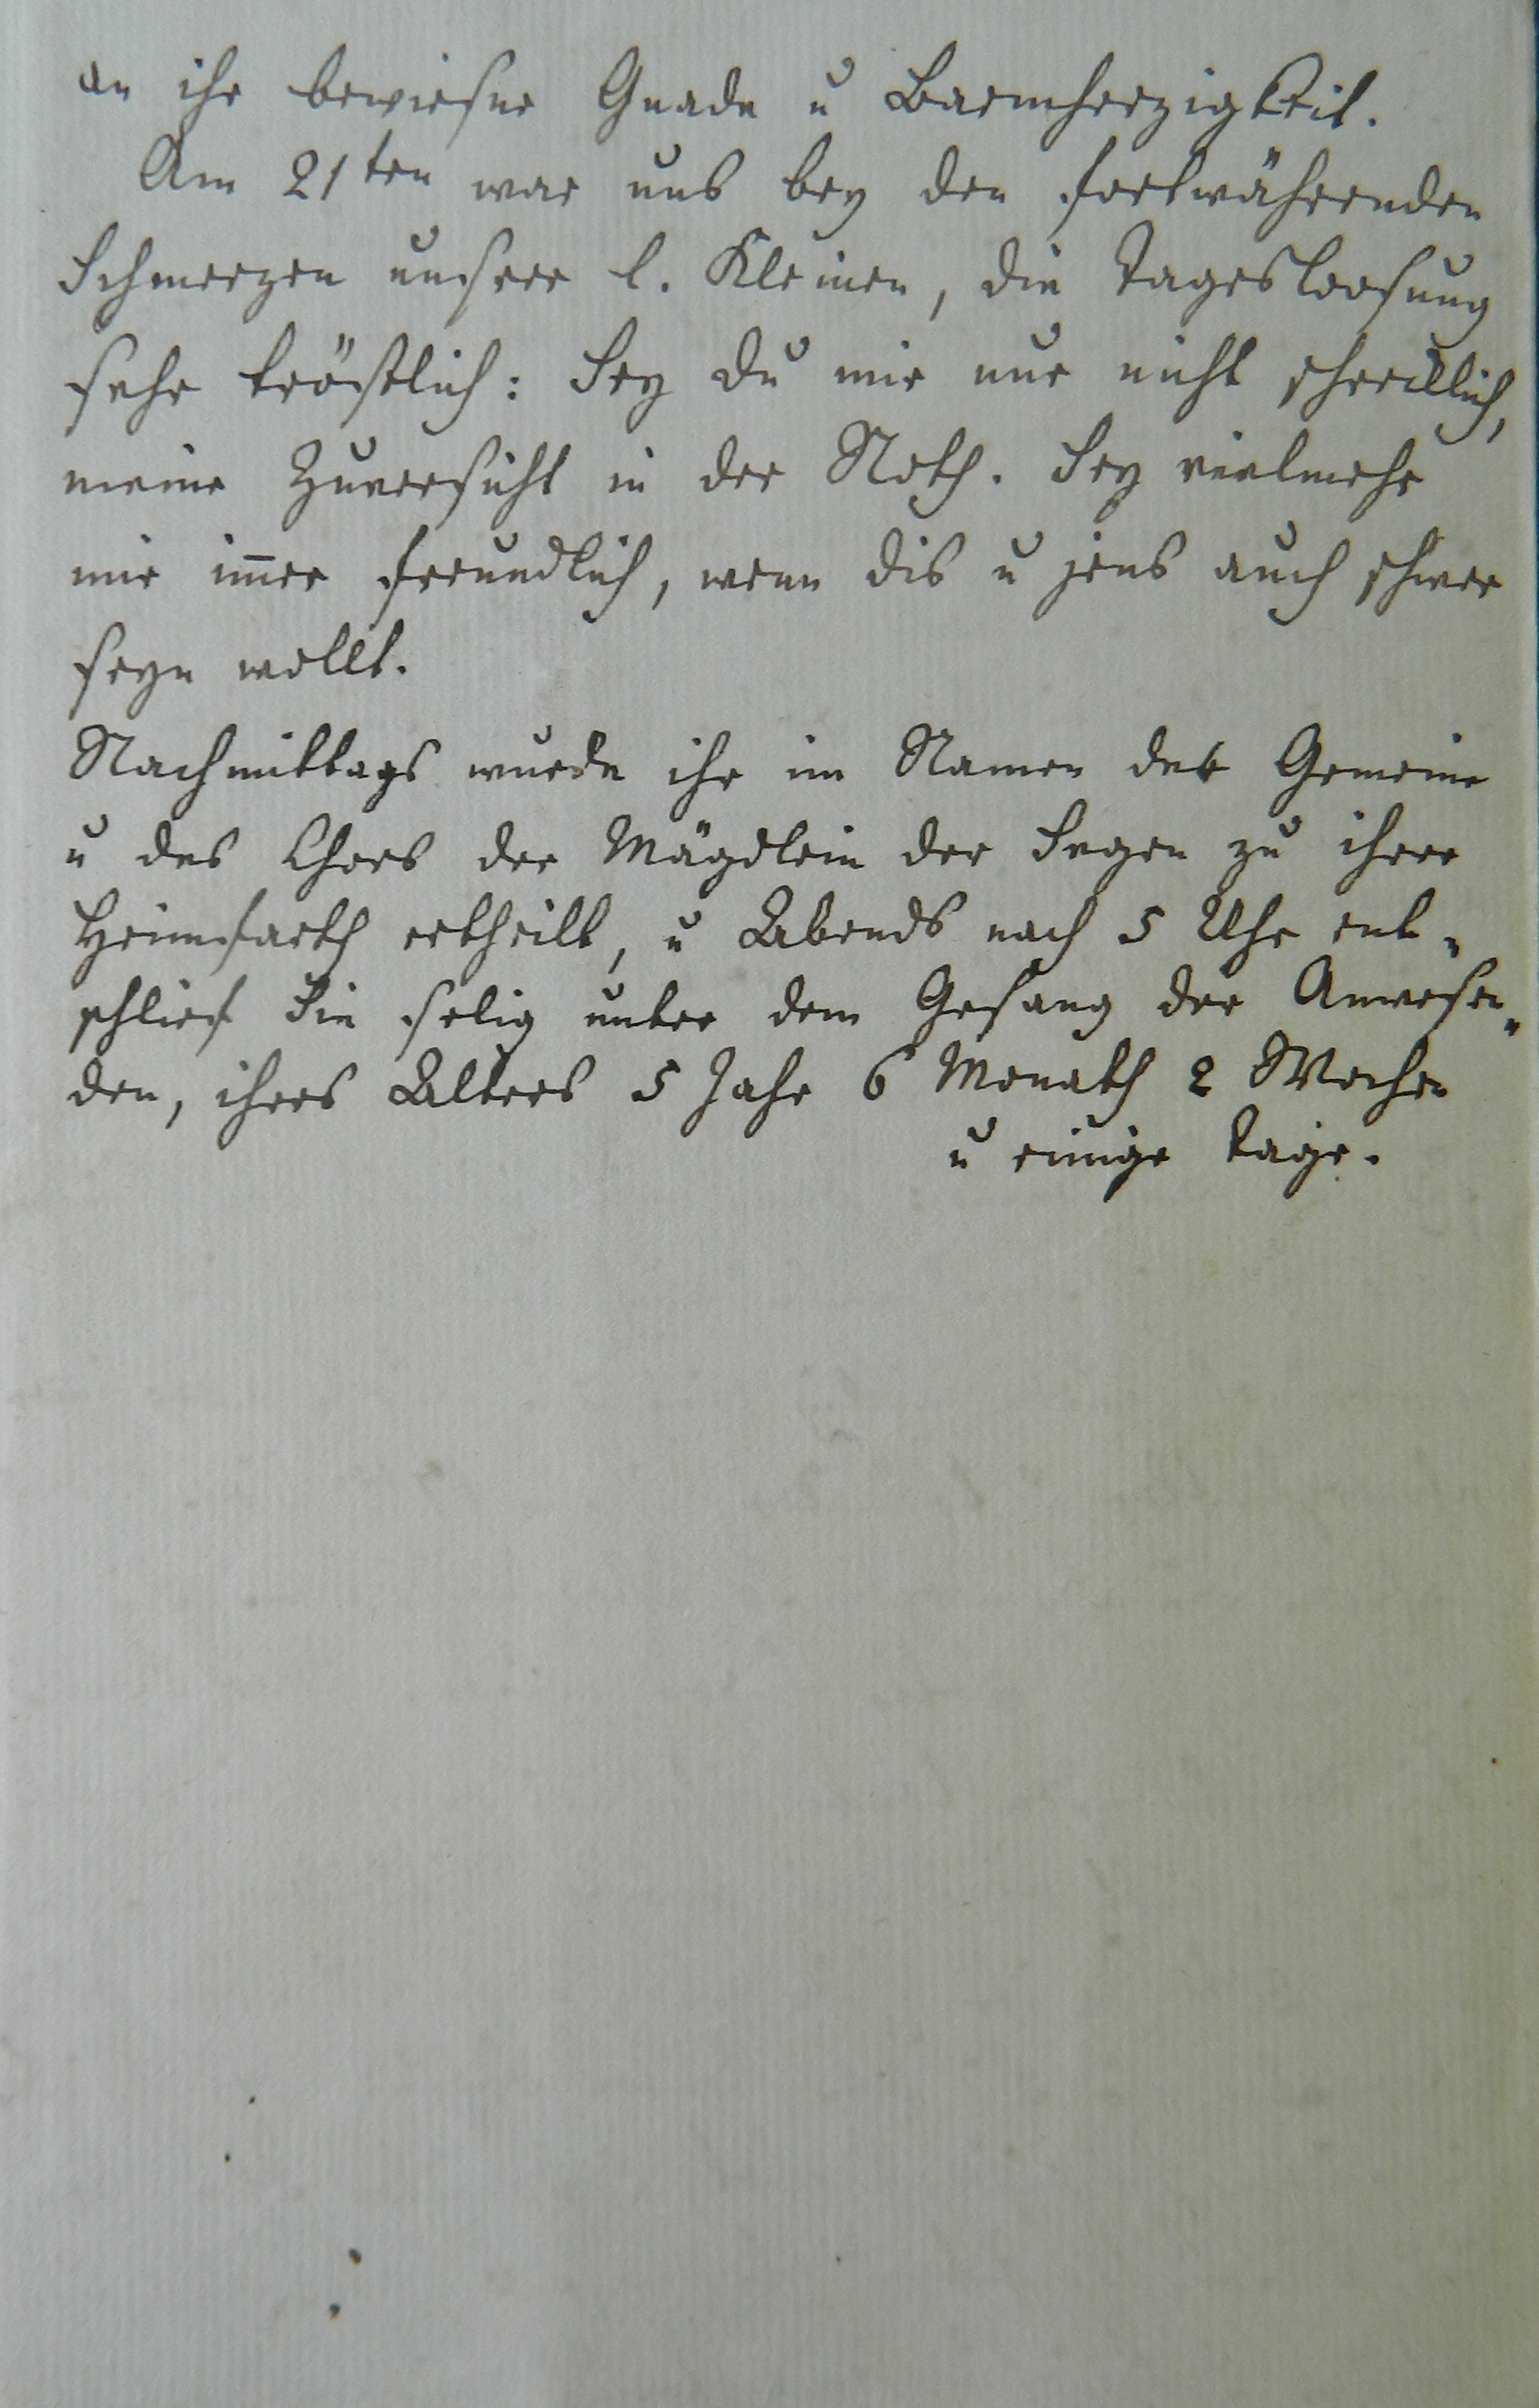 an ihr bewiesne Gnade u Barmherzigkeit.
Am 21ten war uns bey den fortwährenden
Schmerzen unsrer l. Kleinen, die Tagesloosung
sehr tröstlich: Sey du mir nur nicht schrecklich,
meine Zuversicht in der Noth. Sey vielmehr
mir im̄er freundlich, wenn dis u jens auch schwer
seyn wollt.
Nachmittags wurde ihr im Namen der Gemeine
u des Chors der Mägdlein der Segen zu ihrer
Heimfarth ertheilt, u Abends nach 5 Uhr ent-
schlief Sie selig unter dem Gesang der Anwesen-
den, ihres Alters 5 Jahr 6 Monath 2 Wochen
u einige Tage.